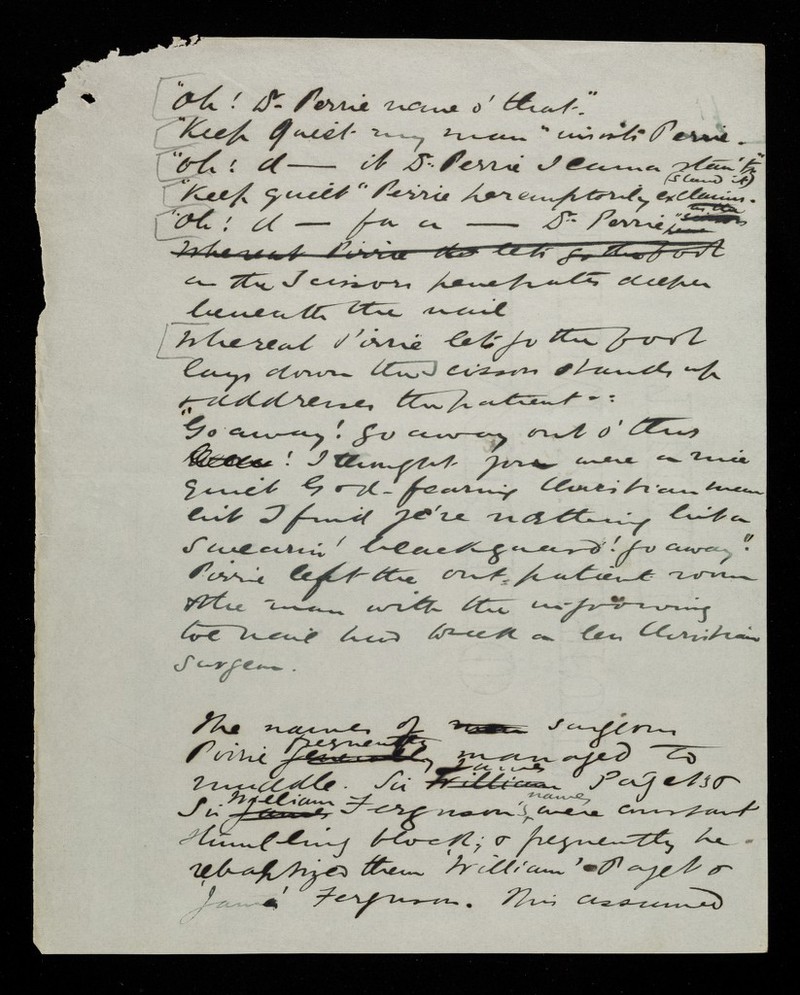 "Oh! Dr. Perrie nane o' that."
"Keep Quiet my man" insists Perrie.
"Oh! d— it Dr. Perrie I canna stan't"
(stand it)
"Keep quiet" Perrie peremptorily exclaims.
"Oh! d — for a — Dr. Perrie,"
as the
Whereat Pirrie lets go the foot
as the Scissors penetrates deeper
beneath the nail
Whereat Pirrie lets go the foot
lays down the Scissors stands up
& addresses the patient -:
"Go away! go away out o' this
! I thought you were a nice
quiet God-fearing Christian man
but I find ye're nothing but a
swearin' blackguard! go away".
Pirrie left the out-patient room
& the man with the ingrowing
toe nail had to seek a less Christian
surgeon.
The names of surgeons
frequently
Pirrie generally managed to
James
muddle. Sir William Paget's &
William names
Sir James Ferguson's, were constant
stumbling block; & frequently he
rebaptized them 'William' Paget &
'James' Ferguson. This assumed